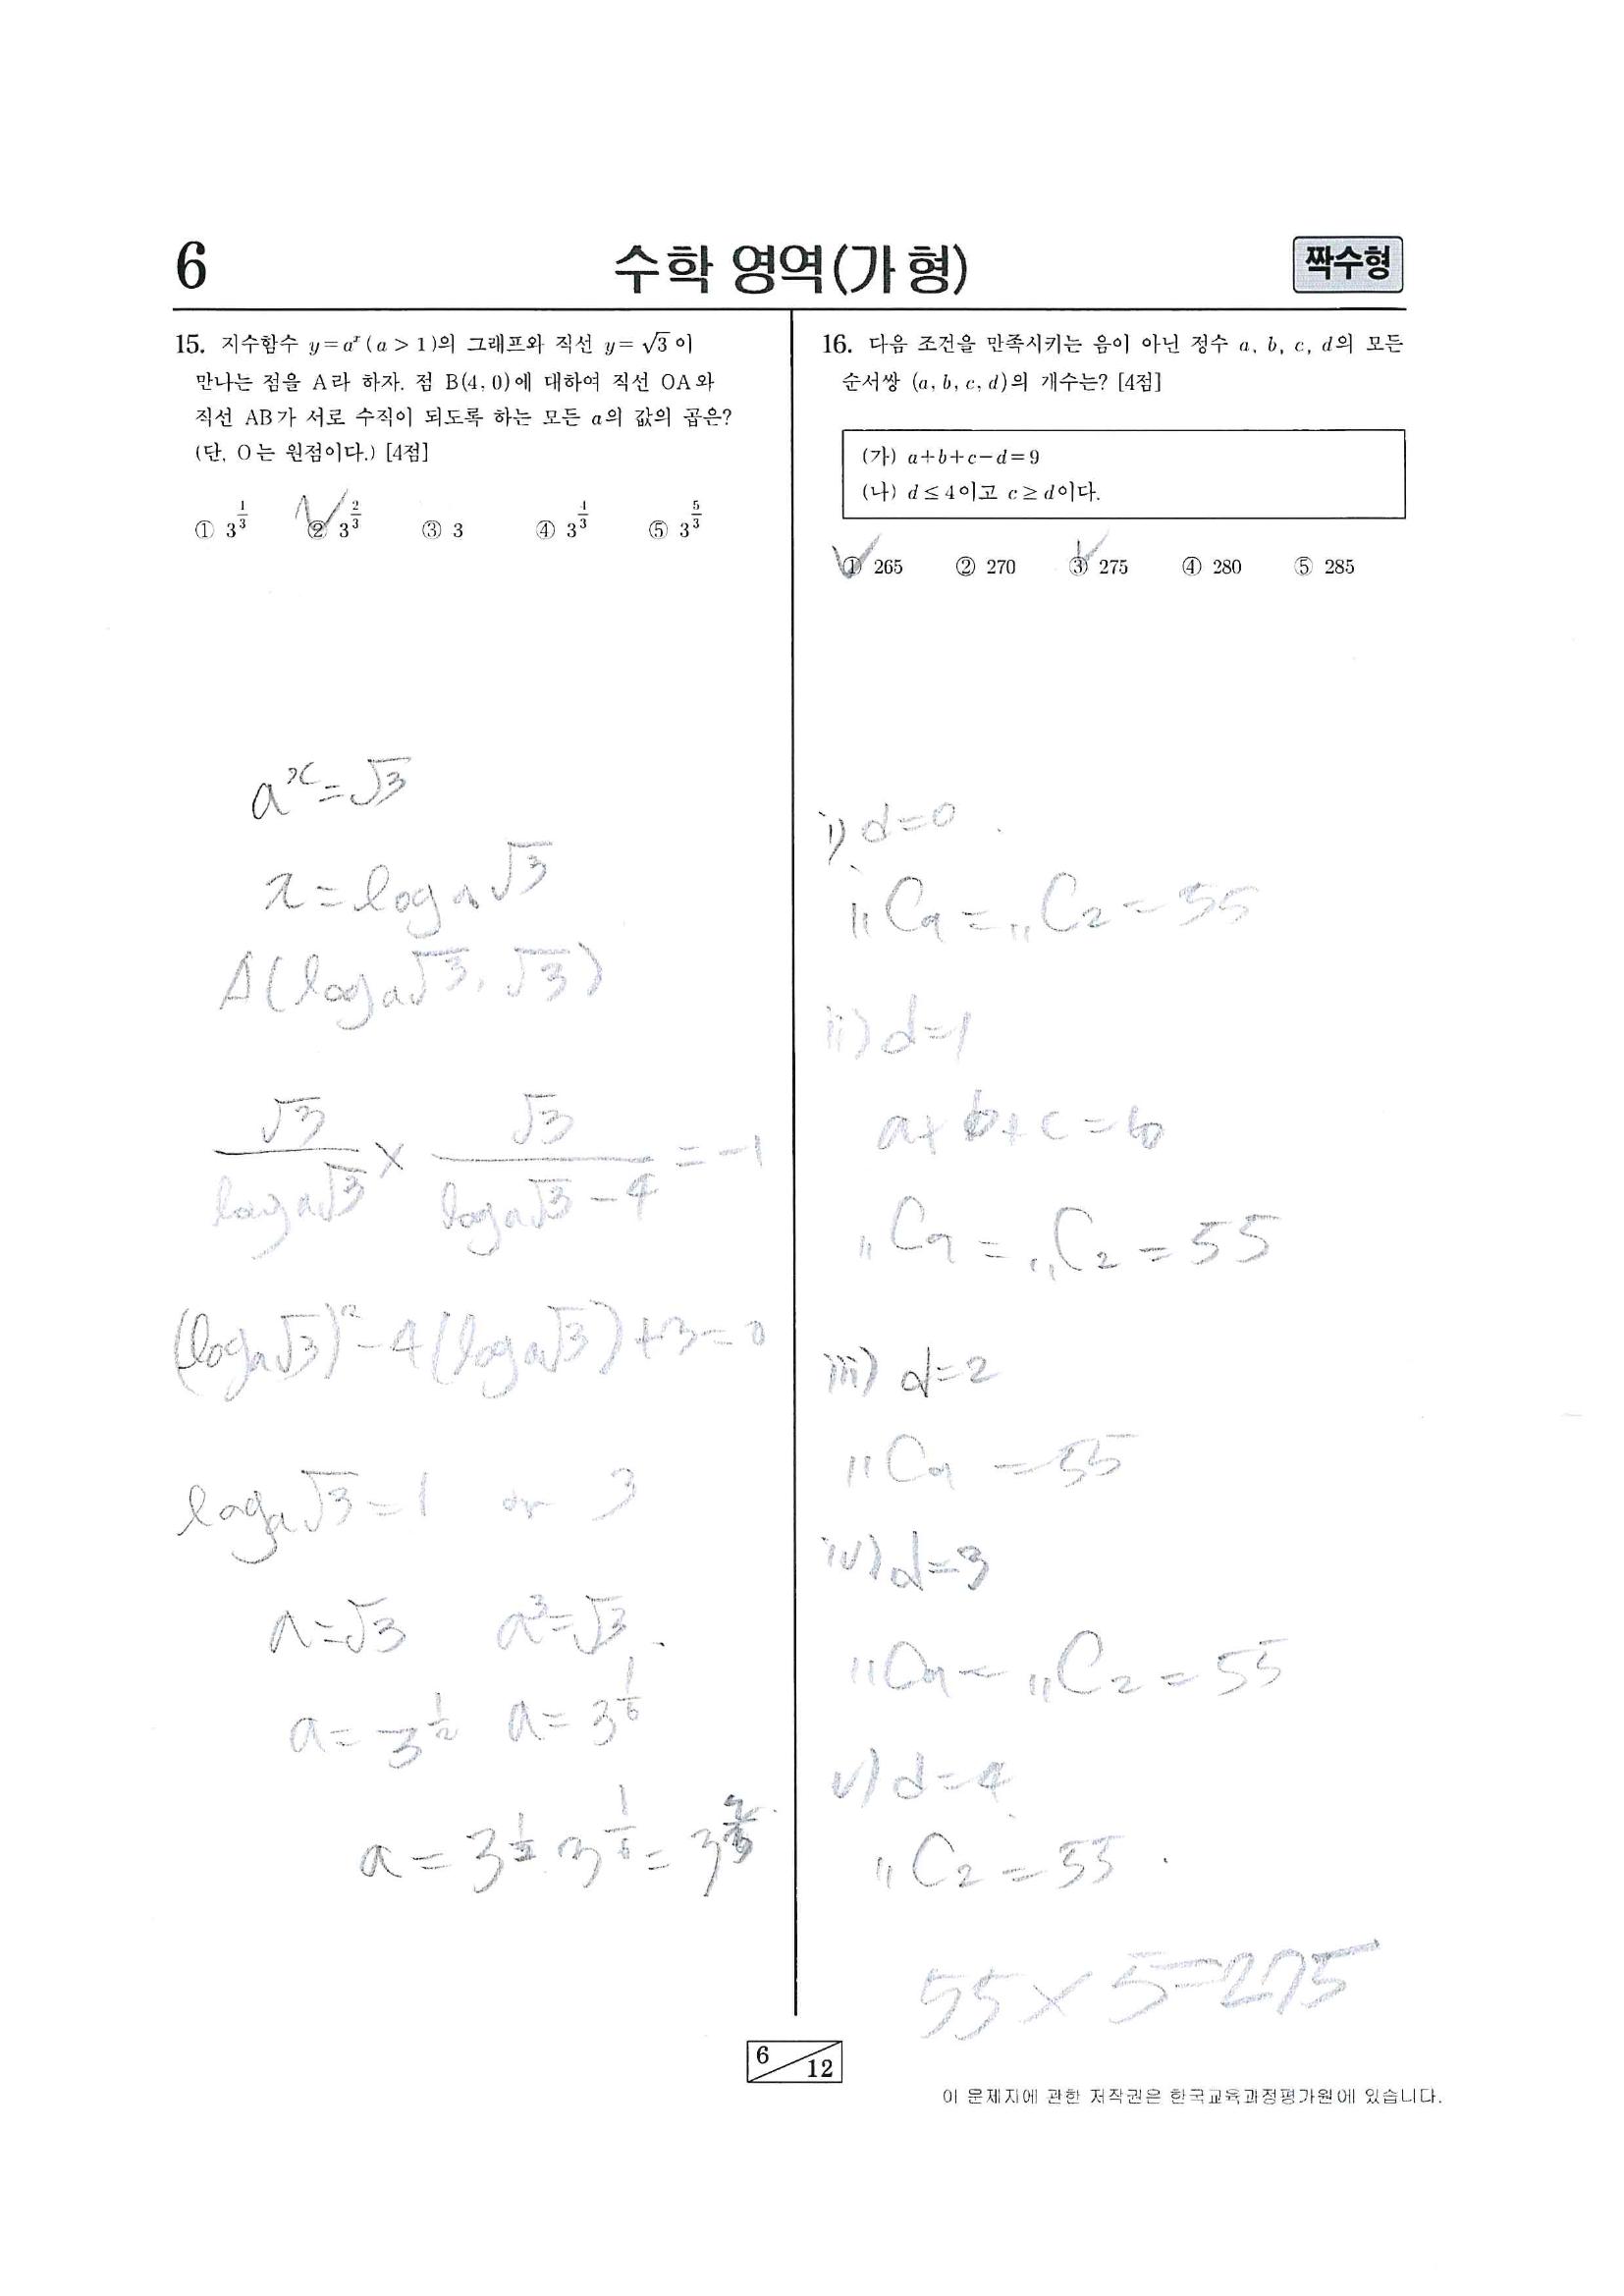 6
수학 영역(가 형)
짝수형
15. 지수함수 y=aˣ (a > 1)의 그래프와 직선 y= √3 이
만나는 점을 A라 하자. 점 B(4, 0)에 대하여 직선 OA와
직선 AB가 서로 수직이 되도록 하는 모든 a의 값의 곱은?
(단, O는 원점이다.) [4점]
① 3^(1/3) ② 3^(2/3) ③ 3 ④ 3^(4/3) ⑤ 3^(5/3)
aˣ=√3
x=logₐ√3
A(logₐ√3, √3)
√3/logₐ√3 × √3/(logₐ√3−4) = −1
(logₐ√3)²−4(logₐ√3)+3=0
logₐ√3=1 or 3
a=√3 a³=√3
a=3^(1/2) a=3^(1/6)
a=3^(1/2) · 3^(1/6) = 3^(2/3)
16. 다음 조건을 만족시키는 음이 아닌 정수 a, b, c, d의 모든
순서쌍 (a, b, c, d)의 개수는? [4점]
(가) a+b+c−d=9
(나) d ≤ 4이고 c ≥ d이다.
① 265 ② 270 ③ 275 ④ 280 ⑤ 285
i) d=0
₁₁C₉=₁₁C₂=55
ii) d=1
₁₁C₉=₁₁C₂=55
iii) d=2
₁₁C₉=55
iv) d=3
₁₁C₉=₁₁C₂=55
v) d=4
₁₁C₂=55
55×5=275
6
12
이 문제지에 관한 저작권은 한국교육과정평가원에 있습니다.